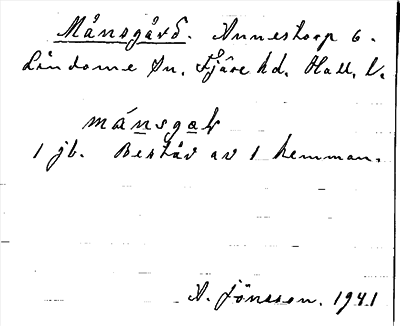 Månsgård. Annestorp 6.
Lindome sn, Fjäre hd. Hall. l.
månsgaḷ
1 jb. Består av 1 hemman.
A. Jönsson. 1941